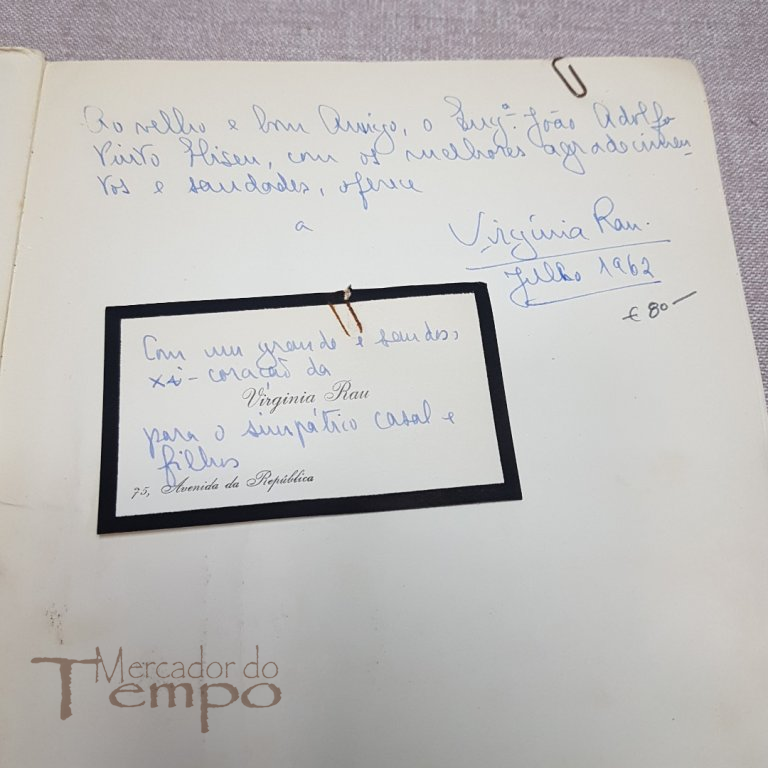 Ao velho e bom Amigo, o Eng.º João Adolfo
Pinto Eliseu, com os melhores agradecimen-
tos e saudades, oferece
a
Virgínia Rau.
Julho 1962
€ 80-
Com um grande e saudoso
xi-coração da
Virginia Rau
para o simpático casal e
filhos
75, Avenida da República
Mercador do
Tempo